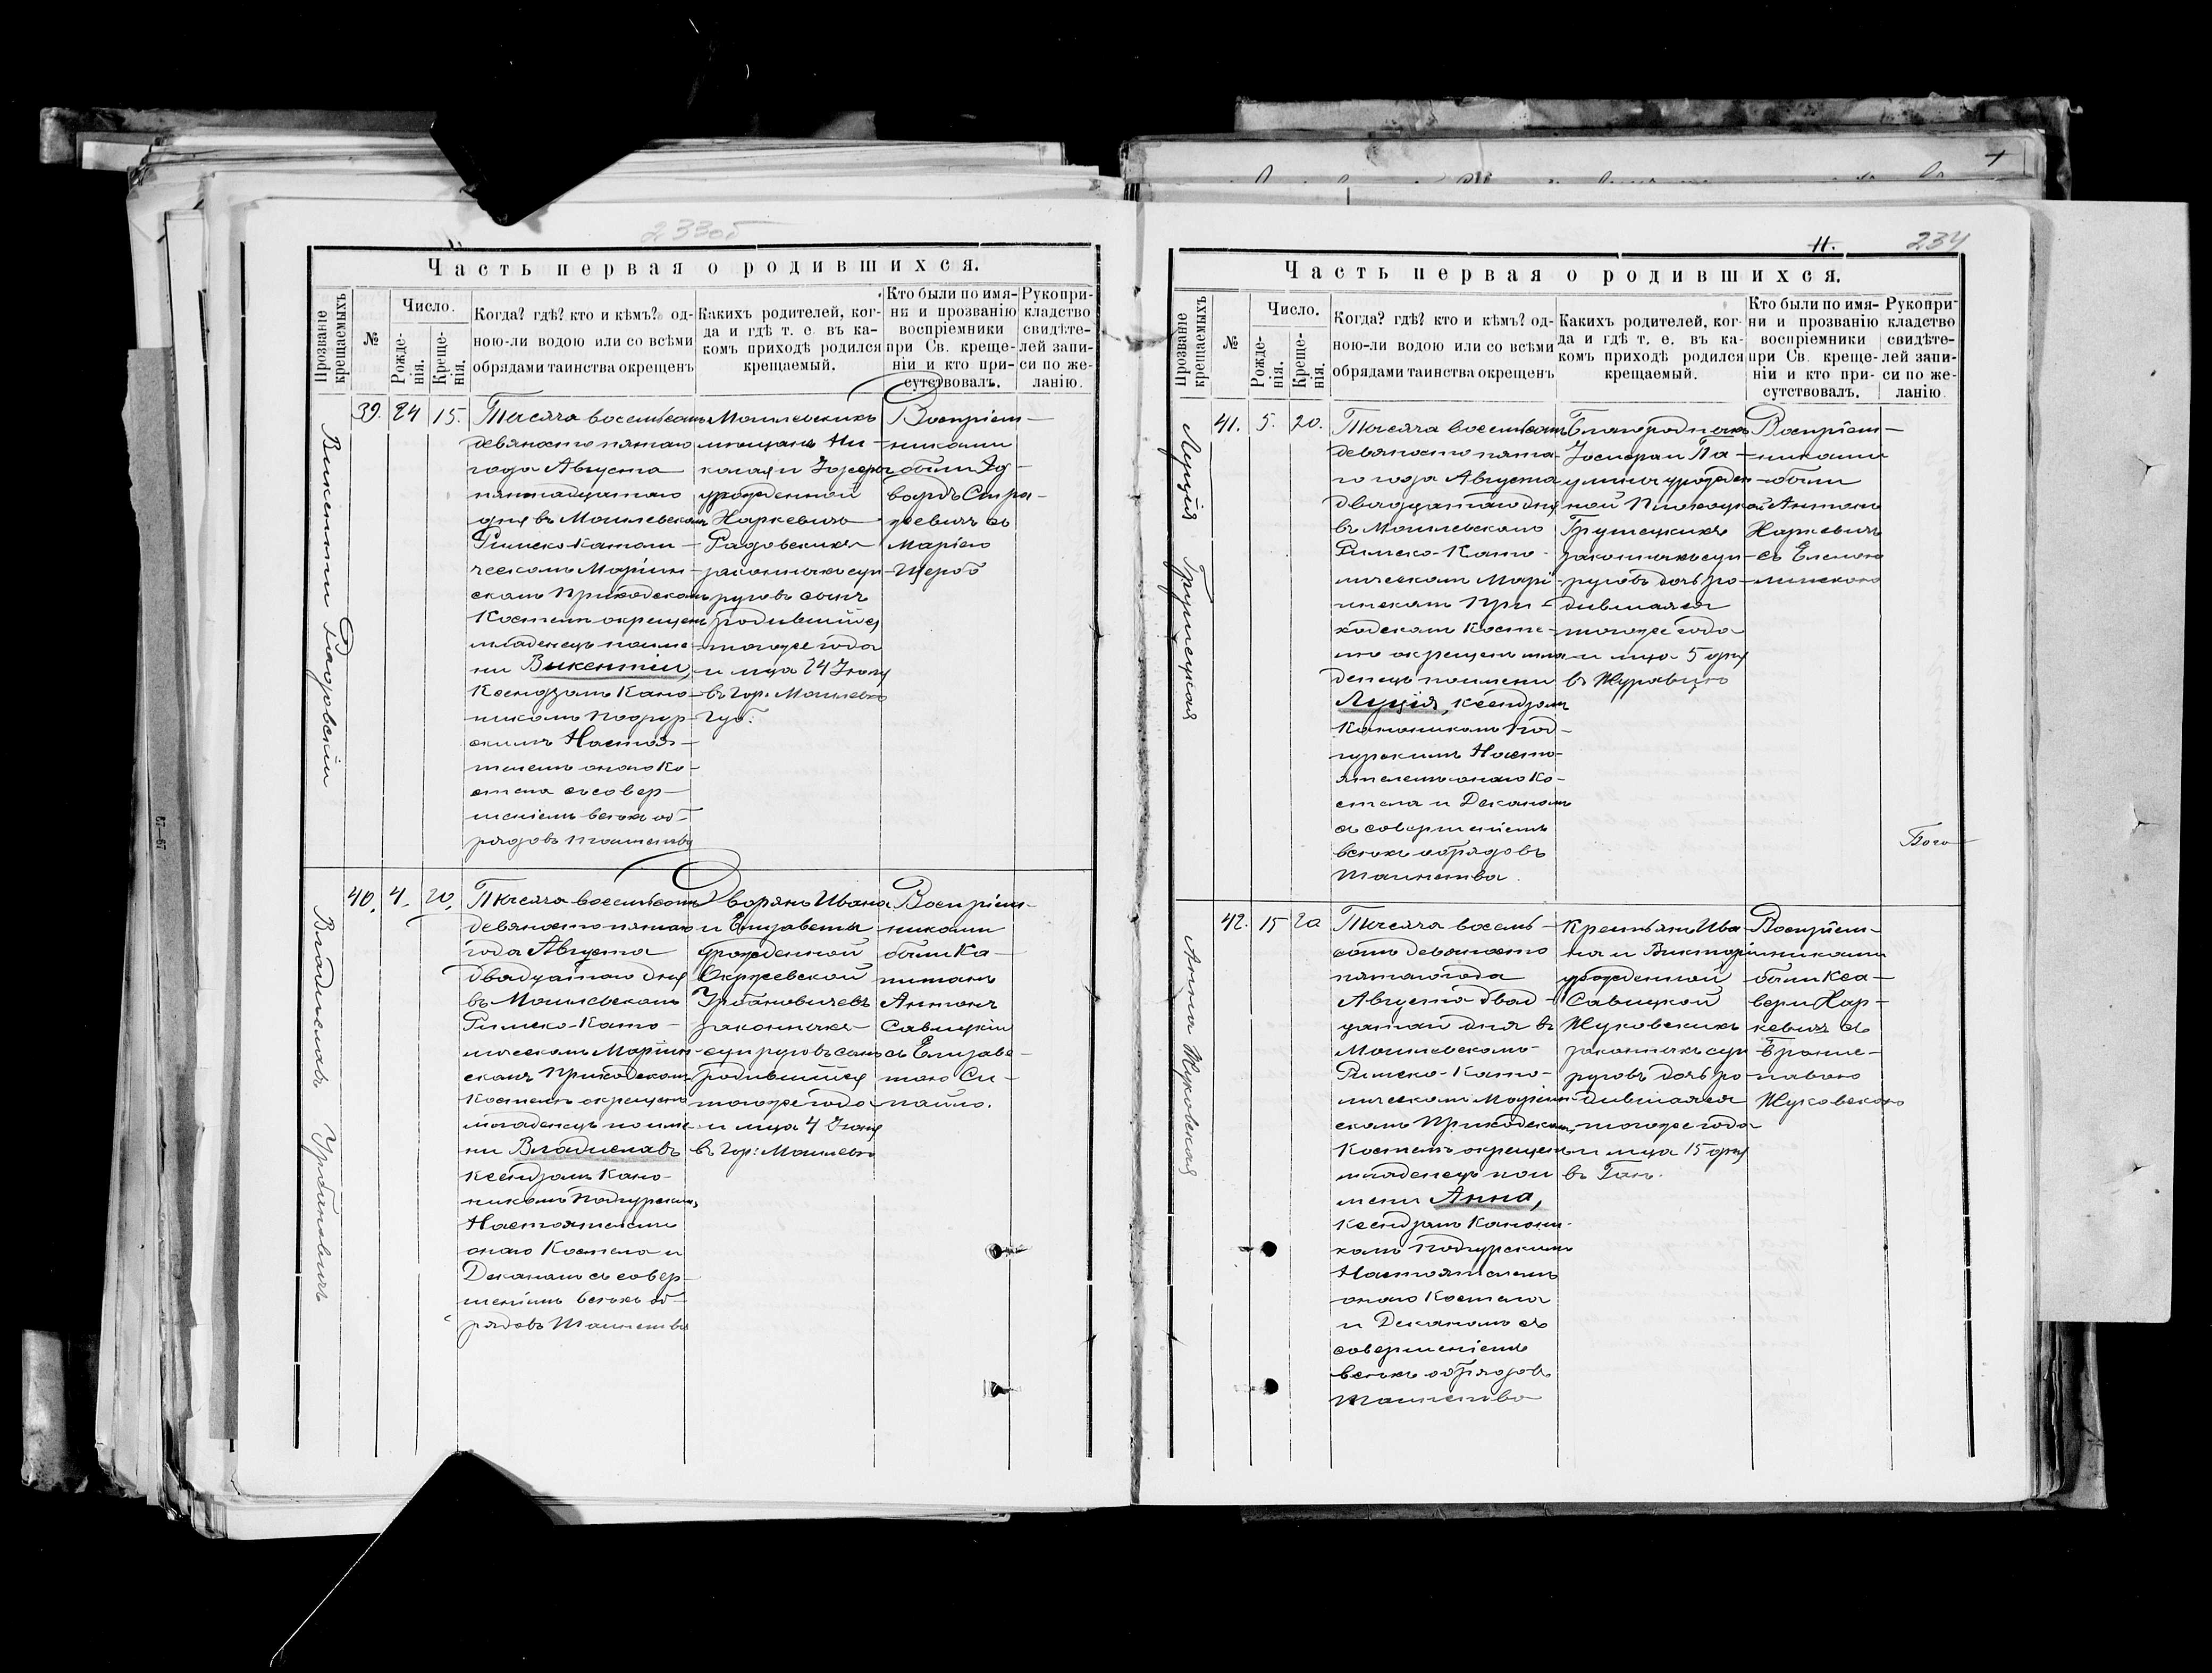 233об
Часть первая о родившихся.
Прозваніе крещаемыхъ
№
Число.
Рожде-
нія.
Креще-
нія.
Когда? гдѣ? кто и кѣмъ? од-
ною-ли водою или со всѣми
обрядами таинства окрещенъ
Какихъ родителей, ког-
да и гдѣ т. е. въ ка-
комъ приходѣ родился
крещаемый.
Кто были по имя-
ни и прозванію
воспріемники
при Св. креще-
ніи и кто при-
сутствовалъ.
Рукопри-
кладство
свидѣте-
лей запи-
си по же-
ланію.
Викентій Радовскій
39. 24 15.
Тысяча восемьсотъ
девяностопятаго
года Августа
пятнадцатаго
дня въ Могилевскомъ
Римско-Католи-
ческомъ Маріин-
скомъ Приходскомъ
Костелѣ окрещенъ
младенецъ по име-
ни Викентій,
Ксендзомъ Кано-
никомъ Подгур-
скимъ Настоя-
телемъ онаго Ко-
стела съ совер-
шеніемъ всѣхъ об-
рядовъ таинства
Могилевскихъ
мѣщанъ Ни-
колая и Іозефы
урожденной
Харкевичъ
Радовскихъ
законныхъ суп-
руговъ сынъ
родившійся
тогоже года
и мца 24 Іюня
въ Гор: Могилевѣ
Губ:
Воспріем-
никами
были Эд-
вардъ
съ
Маріею
Щербо
Владиславъ Урбановичъ
40. 4. 20.
Тысяча восемьсотъ
девяностопятаго
года Августа
двадцатаго дня
въ Могилевскомъ
Римско-Като-
лическомъ Маріин-
скомъ Приходскомъ
Костелѣ окрещенъ
младенецъ по име-
ни Владиславъ
Ксендзомъ Кано-
никомъ Подгурскимъ,
Настоятелемъ
онаго Костела и
Деканомъ съ совер-
шеніемъ всѣхъ об-
рядовъ таинства
Дворянъ Ивана
и Елизаветы
урожденной
Окржевской
Урбановичевъ
законныхъ
супруговъ сынъ
родившійся
тогоже года
и мца 4 Іюня
въ Гор: Могилевѣ
Воспріем-
никами
были Ка-
питанъ
Антонъ
Савицкій
съ Елизаве-
тою Си-
пайло.
11. 234
Часть первая о родившихся.
Прозваніе крещаемыхъ
№
Число.
Рожде-
нія.
Креще-
нія.
Когда? гдѣ? кто и кѣмъ? од-
ною-ли водою или со всѣми
обрядами таинства окрещенъ
Какихъ родителей, ког-
да и гдѣ т. е. въ ка-
комъ приходѣ родился
крещаемый.
Кто были по имя-
ни и прозванію
воспріемники
при Св. креще-
ніи и кто при-
сутствовалъ.
Рукопри-
кладство
свидѣте-
лей запи-
си по же-
ланію.
Луція Грушецкая
41. 5. 20.
Тысяча восемьсотъ
девяностопята-
го года Августа
двадцатаго дня
въ Могилевскомъ
Римско-Като-
лическомъ Марі-
инскомъ При-
ходскомъ Косте-
лѣ окрещенъ мла-
денецъ по имени
Луція, Ксендзомъ
Каноникомъ Под-
гурскимъ Насто-
ятелемъ онаго Ко-
стела и Деканомъ
съ совершеніемъ
всѣхъ обрядовъ
таинства.
Благородныхъ
Іосифа и Па-
улины урожден-
ной
Грушецкихъ
законныхъ суп-
руговъ дочь ро-
дившаяся
тогоже года
и мца 5 дня
въ Журавцѣ
Воспріем-
никами
были
Антонъ
Харкевичъ
съ Еленою
Бого
Анна Жуковская
42. 15 20
Тысяча восемь-
сотъ девяносто
пятаго года
Августа двад-
цатаго дня въ
Могилевскомъ
Римско-Като-
лическомъ Маріин-
скомъ Приходскомъ
Костелѣ окрещенъ
младенецъ по и-
мени Анна,
Ксендзомъ Канони-
комъ Подгурскимъ
Настоятелемъ
онаго Костела
и Деканомъ съ
совершеніемъ
всѣхъ обрядовъ
таинства
Крестьянъ Ива-
на и Викторіи
урожденной
Савицкой
Жуковскихъ
законныхъ суп-
руговъ дочь ро-
дившаяся
тогоже года
и мца 15 дня
въ
Воспріем-
никами
были Кса-
верій Хар-
кевичъ съ
Брони-
славою
Жуковскою